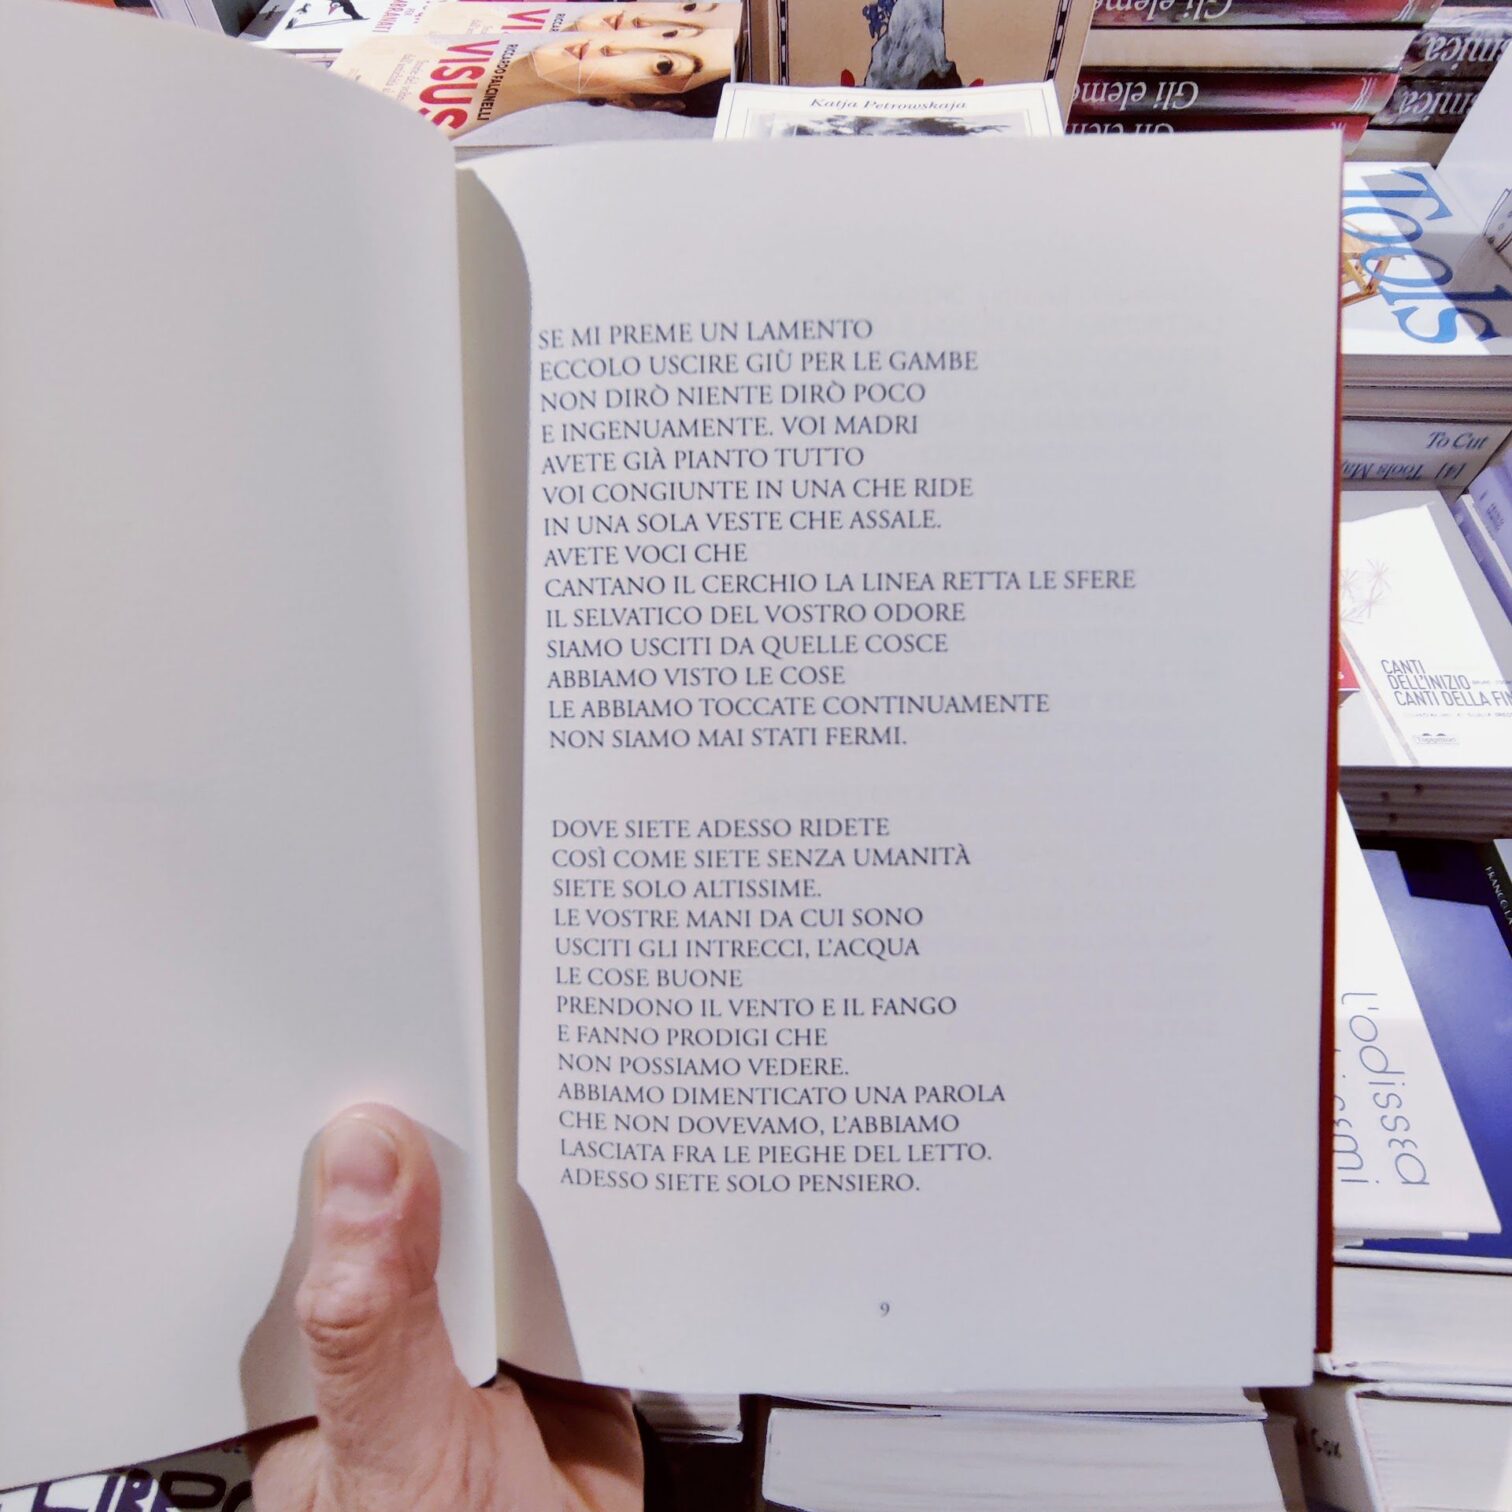 ARRANATI
VISUS
RICCARDO FALCINELLI
Katja Petrowskaja
Gli eleme
Gli eleme
Tools
To Cut
[4] Tools
CANTI
DELL'INIZIO
CANTI DELLA FI
l'odissea
SE MI PREME UN LAMENTO
ECCOLO USCIRE GIÙ PER LE GAMBE
NON DIRÒ NIENTE DIRÒ POCO
E INGENUAMENTE. VOI MADRI
AVETE GIÀ PIANTO TUTTO
VOI CONGIUNTE IN UNA CHE RIDE
IN UNA SOLA VESTE CHE ASSALE.
AVETE VOCI CHE
CANTANO IL CERCHIO LA LINEA RETTA LE SFERE
IL SELVATICO DEL VOSTRO ODORE
SIAMO USCITI DA QUELLE COSCE
ABBIAMO VISTO LE COSE
LE ABBIAMO TOCCATE CONTINUAMENTE
NON SIAMO MAI STATI FERMI.
DOVE SIETE ADESSO RIDETE
COSÌ COME SIETE SENZA UMANITÀ
SIETE SOLO ALTISSIME.
LE VOSTRE MANI DA CUI SONO
USCITI GLI INTRECCI, L'ACQUA
LE COSE BUONE
PRENDONO IL VENTO E IL FANGO
E FANNO PRODIGI CHE
NON POSSIAMO VEDERE.
ABBIAMO DIMENTICATO UNA PAROLA
CHE NON DOVEVAMO, L'ABBIAMO
LASCIATA FRA LE PIEGHE DEL LETTO.
ADESSO SIETE SOLO PENSIERO.
9